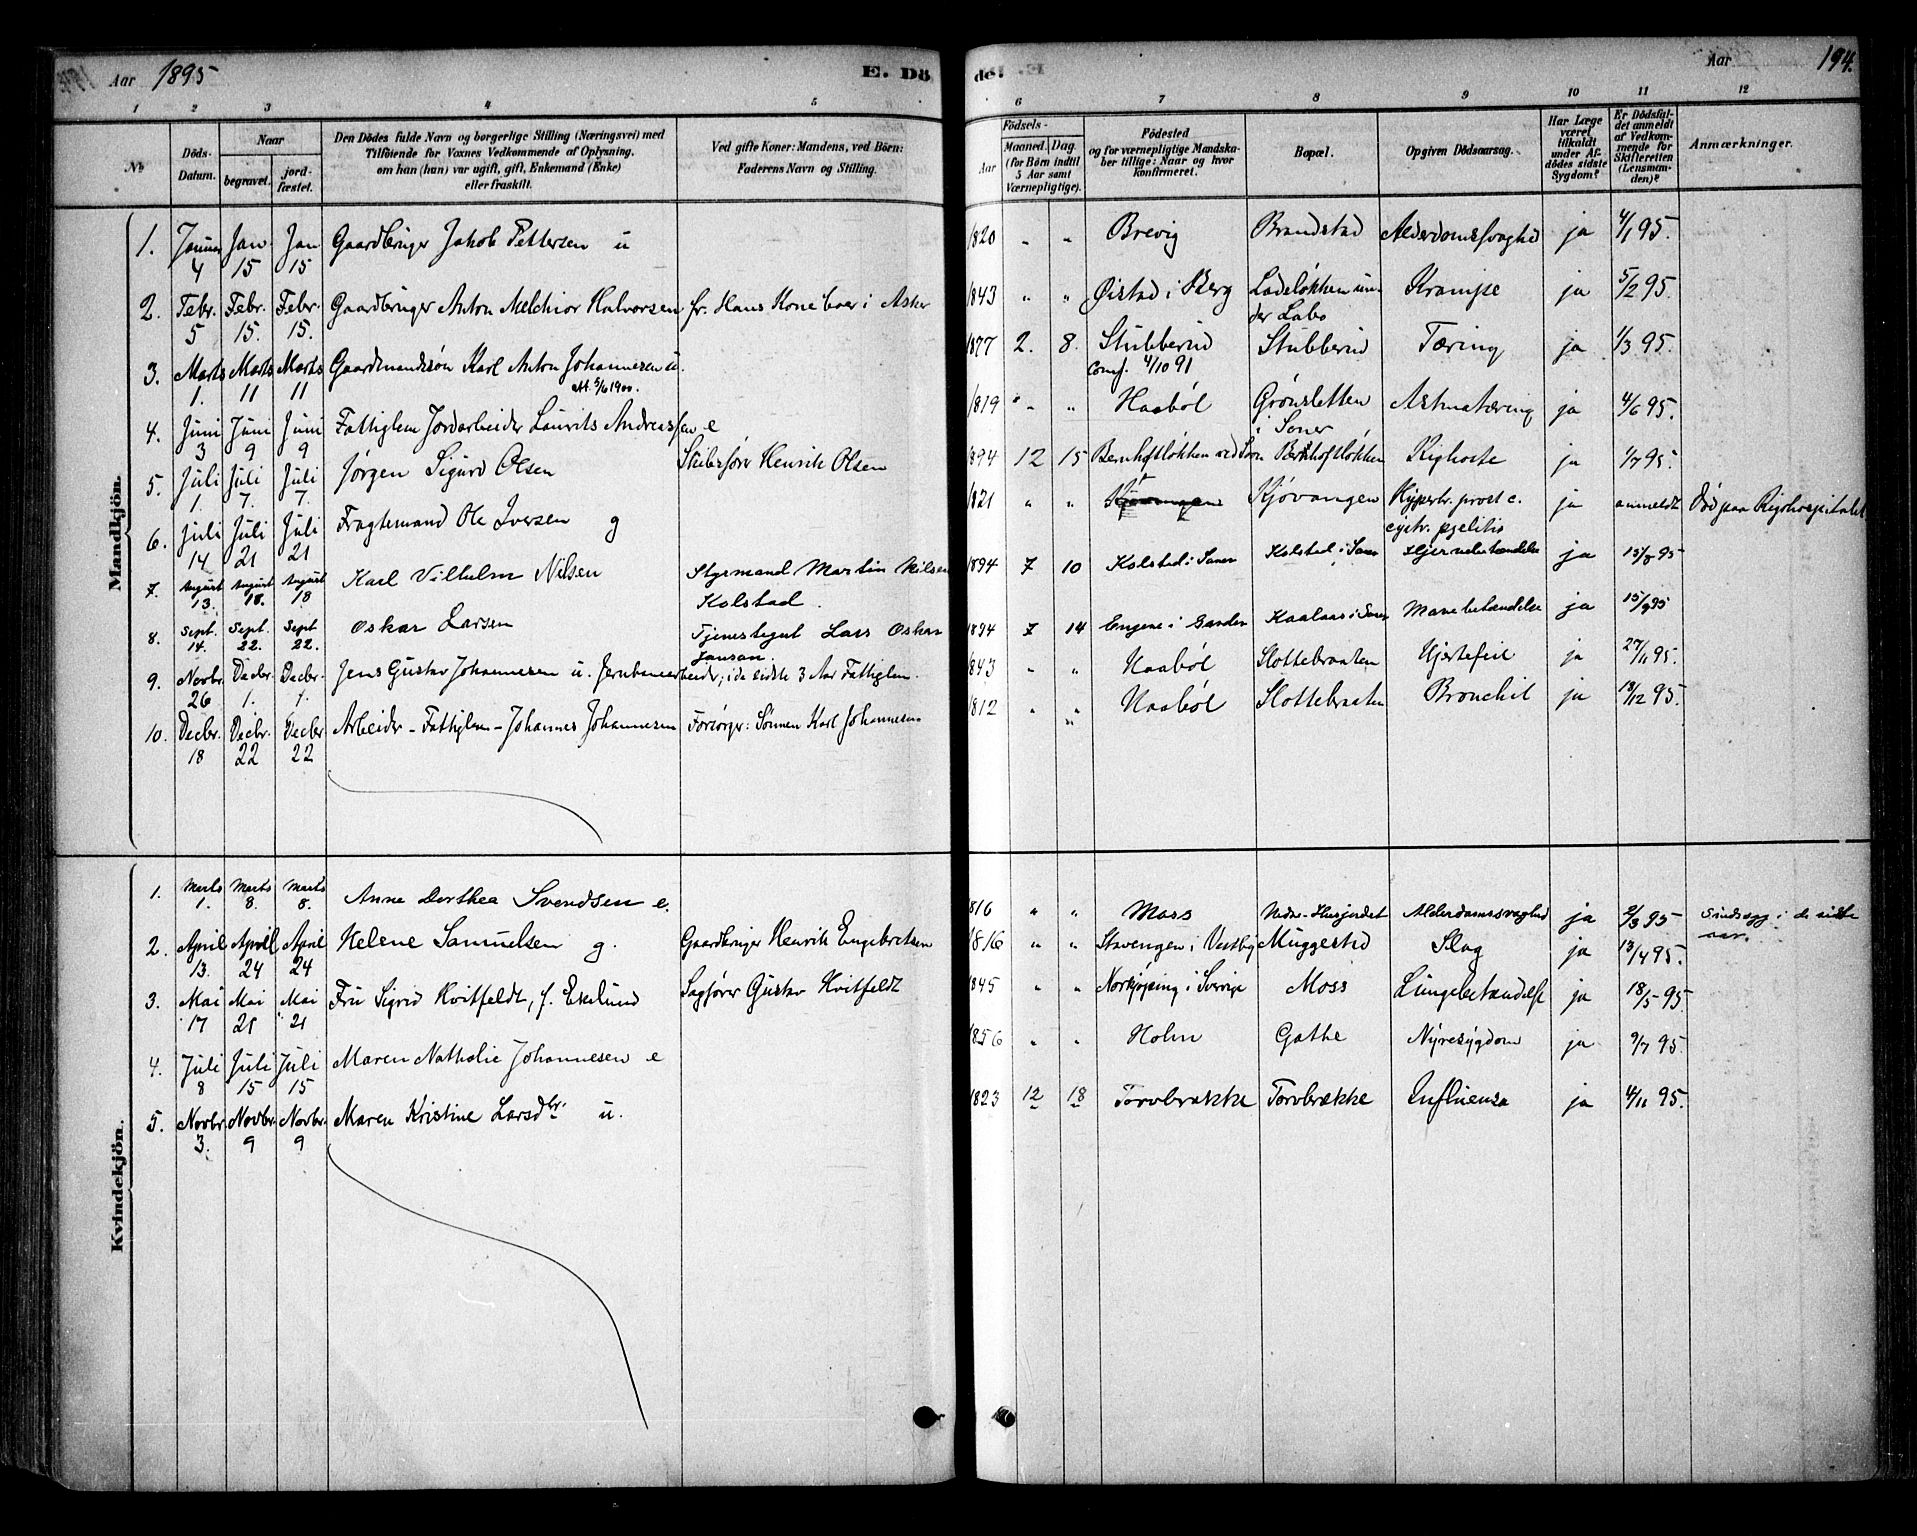 Aar 1895
E. Dö
de.
Aar
194.
1 2 3 4 5 6 7 8 9 10 11 12
No
Döds-Datum.
Naar
begravet.
jord-fæstet.
Den Dödes fulde Navn og borgerlige Stilling (Næringsvei) med
Tilföiende for Voxnes Vedkommende af Oplysning,
om han (hun) var ugift, gift, Enkemand (Enke)
eller fraskilt.
Ved gifte Koner: Mandens, ved Börn:
Faderens Navn og Stilling.
Födsels-
Aar
Maaned. (for Börn indtil 5 Aar samt Værnepligtige).
Dag.
Födested
og for værnepligtige Mandska-
ber tillige: Naar og hvor
konfirmeret.
Bopæl.
Opgiven Dödsaarsag.
Har Læge været tilkaldt under Af-dödes sidste Sygdom?
Er Dödsfal-det anmeldt af Vedkom-mende for Skifteretten (Lensman-den)?
Anmærkninger.
Mandkjön.
1. Januar 4 Jan. 15 Jan 15 Gaardbruger Jakob Pettersen u 1820 " " Brevig Brandstad Alderdomssvaghed ja 4/1 95.
2. Febr. 5 Febr. 15. Febr. 15. Gaardbruger Anton Melchior Halvorsen fr. Hans Kone boer i Asker 1843 " " Øistad i Berg Ladeløkken un-der Labo Krampe ja 5/2 95.
3. Marts 1. Marts 11 Marts 11 Gaardmandssøn Karl Anton Johannesen u. Att. 5/6 1900. 1877 2. 8. Stubberud conf. 4/10 91 Stubberud Tæring ja 1/3 95.
4. Juni 3 Juni 9 Juni 9 Fattiglem Jordarbeider Laurits Andreassen e 1819 " " Haabøl Grønsletten i Soner Astmatæring ja 4/6 95.
5. Juli 1. Juli 7. Juli 7. Jørgen Sigurd Olsen Skibsfører Henrik Olsen 1894 12 15 Bernhoftløkken ved Son Bernhoftløkken Kighoste ja 1/7 95.
6. Juli 14 Juli 21 Juli 21 Fragtemand Ole Iversen g 1821 " " Kjøvangen Kjøvangen Hypertr. prost c. cystr. pyelitis ja anmeldt Død paa Rigshospitalet
7. August 13. August 18. August 18 Karl Vilhelm Nilsen Styrmand Martin Nilsen Kolstad. 1894 7 10 Kolstad i Soner Kolstad i Soner Hjernebetændelse ja 15/8 95
8. Sept. 14. Sept. 22. Sept 22. Oskar Larsen Tjenestegut Lars Oskar Jansan. 1894 7 14 Engene i Garder Kaalaas i Soner Mavebetændelse ja 15/9 95
9. Novbr. 26 Decbr. 1. Decbr. 1. Jens Gustav Johannesen u. Jernbanearbeider; i de sidste 3 Aar Fattiglem. 1843 " " Haabøl Slottebraaten Hjertefeil ja 27/11 95.
10. Decbr. 18 Decbr. 22 Decbr 22 Arbeider - Fattiglem - Johannes Johannesen Forsørger: Sønnen Karl Johannesen 1812 " " Haabøl Slottebraaten Bronchit ja 18/12 95.
Kvindekjön.
1. Marts 1. Marts 8. Marts 8. Anne Dorthea Svendsen e. 1816 " " Moss Nedre-Husjordet Alderdomssvaghed ja 2/3 95 Sindssyg i de sidste aar.
2. April 13. April 24 April 24 Helene Samuelsen g. Gaardbruger Henrik Engebretsen 1816 " " Stavengen i Vestby Muggestad Slag ja 13/4 95.
3. Mai 17 Mai 21 Mai 21 Fru Sigrid Hvitfeldt, f. Ekelund Sagfører Gustav Hvitfeldt 1845 " " Norkjøping i Sverige Moss Lungebetændelse ja 18/5 95
4. Juli 8 Juli 15 Juli 15 Maren Nathalie Johannesen e 1856 " " Holm Gathe Nyresygdom ja 9/7 95.
5. Novbr. 3. Novbr. 9 Novbr. 9 Maren Kristine Larsdtr. u. 1823 12 18 Torvbrække Torvbrække Influensa ja 4/11 95.